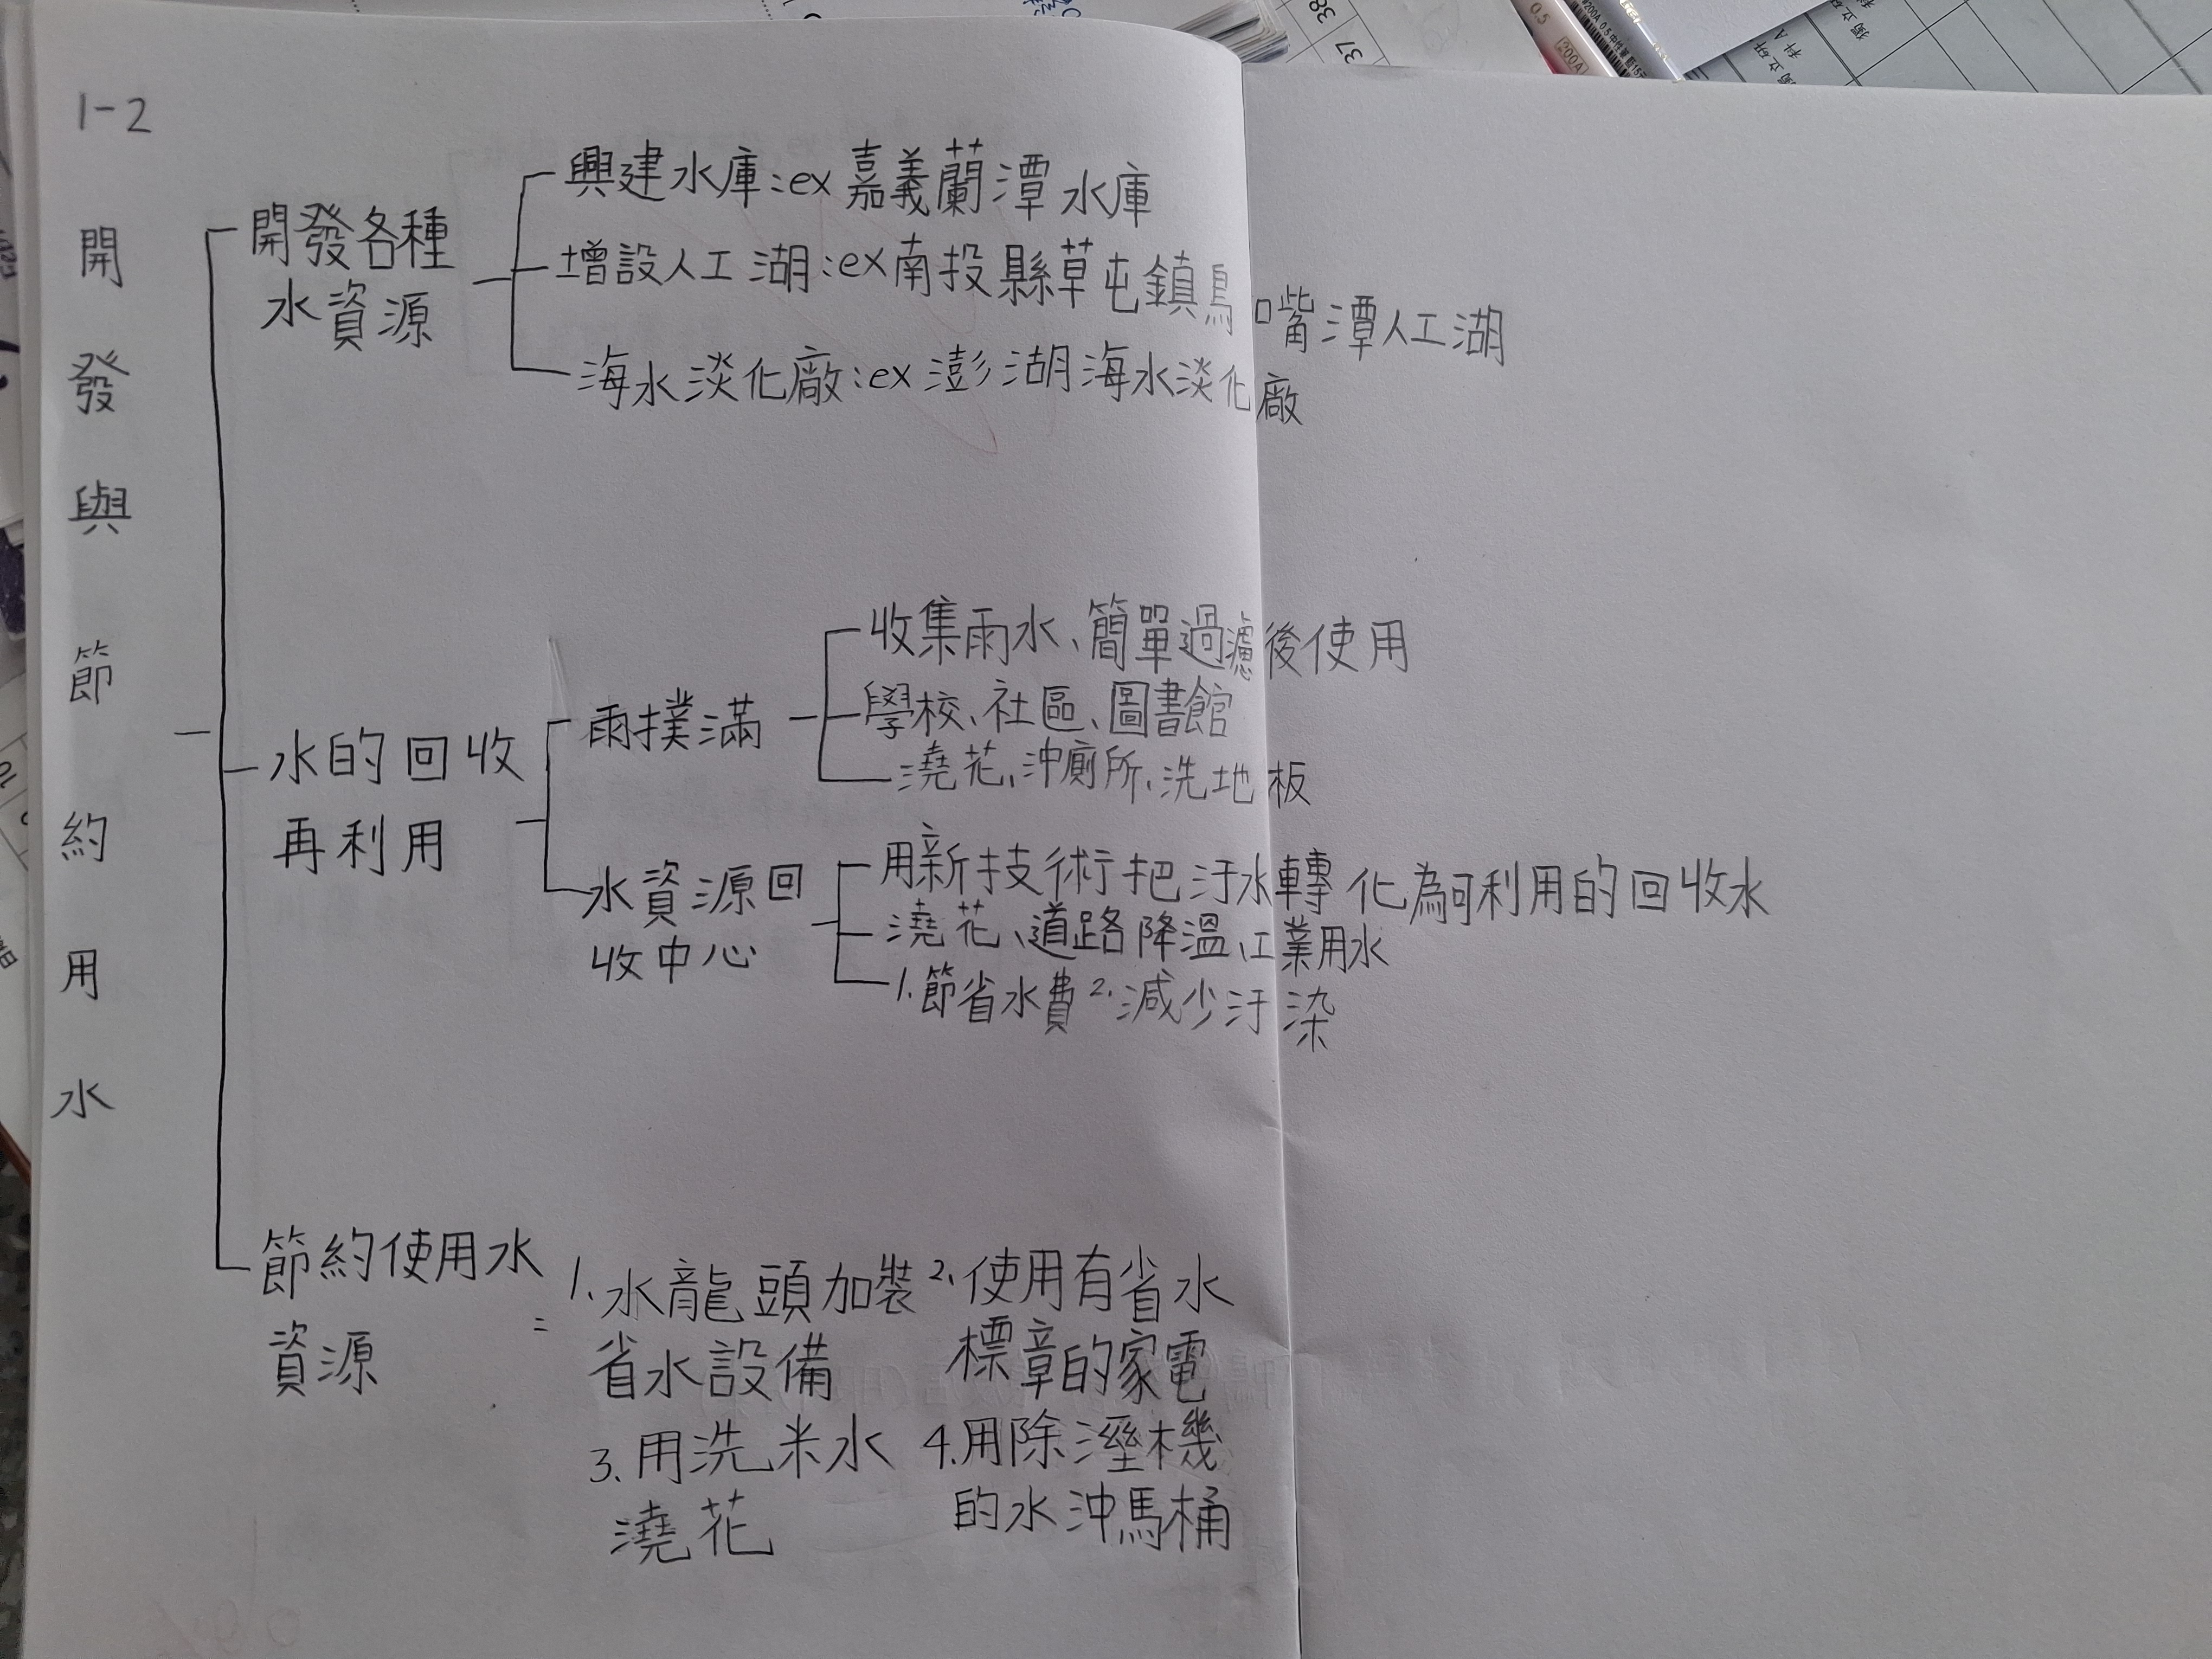 1-2
開發與節約用水
開發各種
水資源
興建水庫:ex嘉義蘭潭水庫
增設人工湖:ex南投縣草屯鎮鳥嘴潭人工湖
海水淡化廠:ex澎湖海水淡化廠
水的回收
再利用
雨撲滿
收集雨水、簡單過濾後使用
學校、社區、圖書館
澆花、沖廁所、洗地板
水資源回
收中心
用新技術把汙水轉化為可利用的回收水
澆花、道路降溫、工業用水
1.節省水費2.減少汙染
節約使用水
資源
=
1.水龍頭加裝
省水設備
2.使用有省水
標章的家電
3.用洗米水
澆花
4.用除溼機
的水沖馬桶
38
37
0.5
200A
獨立研
科A